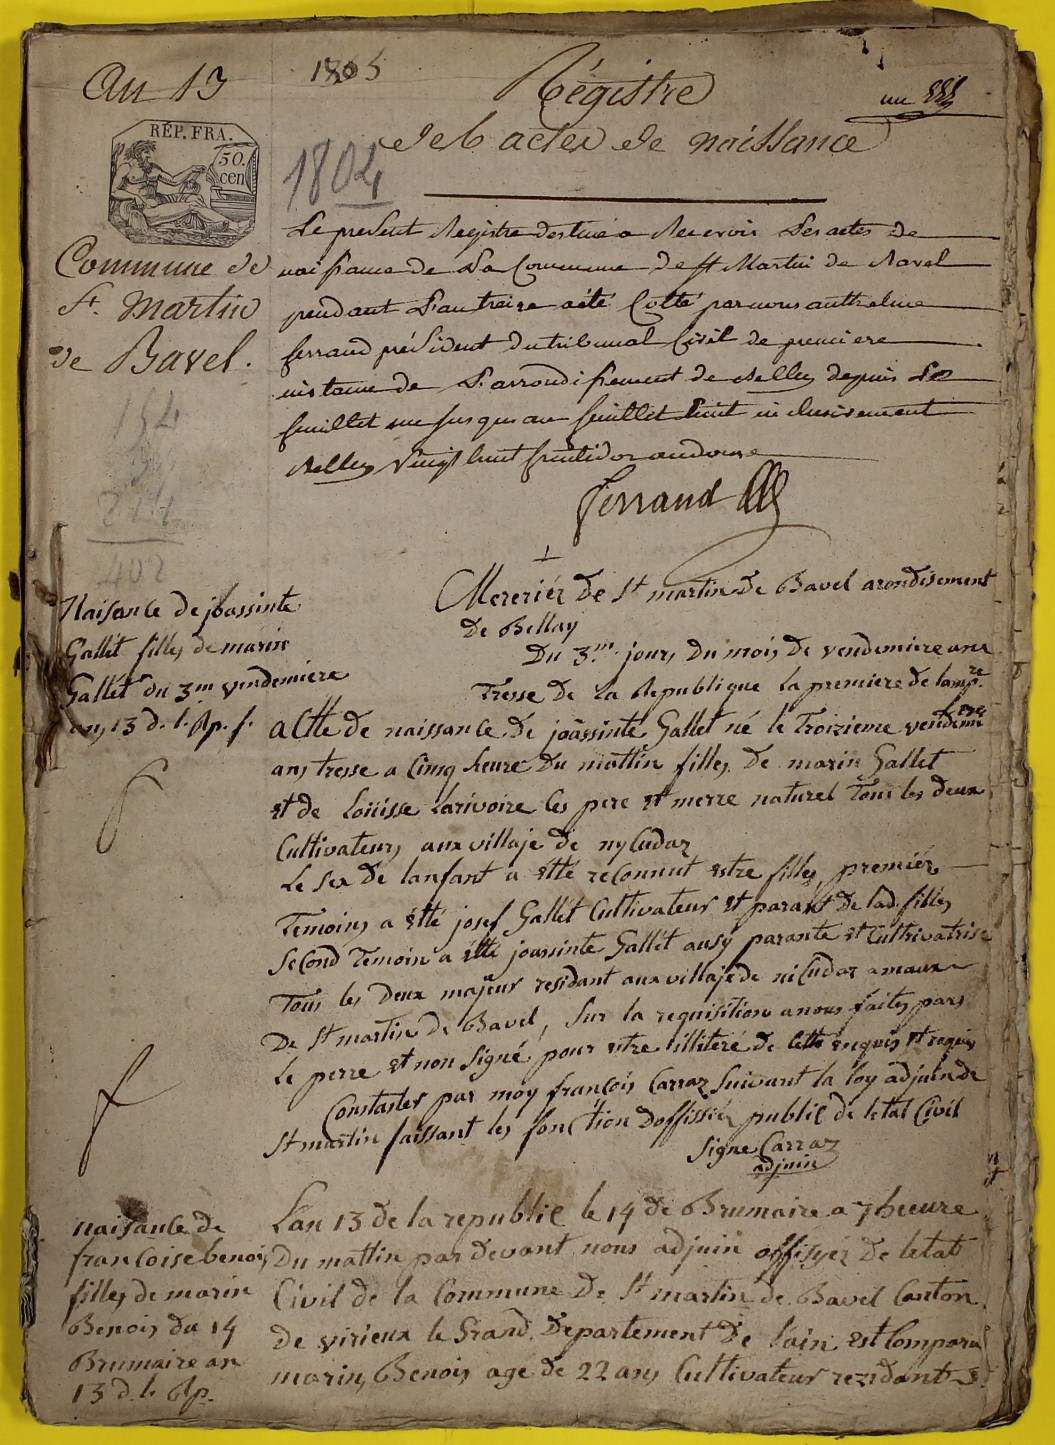 An 13
1805
Régistre
un
RÉP. FRA.
50.
cen
des actes de naissance
1804
Commune de
St. Martin
de Bavel.
Le present Registre destiné a Recevoir Les actes de
naissance de La Commune de St Martin de Bavel
pendant L'an treize a été Cotté par nous anthelme
ferrand président du tribunal Civil de premiere
instance de L'arrondissement de Belley depuis Le
feuillet un jusques au feuillet huit inclusivement
Belley Vingt huit fructidor an douze
ferrand
154
244
402
Mereriér de St martin de Bavel arondisement
de Bellay
Du 3.me jours du mois de vendemiere ans
tresse de la Republique la premiere de lampre
Naisance de joassinte
Gallét filles de marin
Gallét du 3m vendemiere
an 13 d. l. Rp. f.
actte de naissance de joassinte Gallét né le troizieme vendem
ans tresse a Cinq heure du mattin filles de marin Gallét
et de Loüisse Larivoire les pere et merre naturel tous les deux
Cultivateurs aux villaje de nyCudaz
Le sex de lanfant a étté reConnut estre filles, premiér
temoins a étté josef Gallét Cultivateur et parant de lad. filles
seCond temoin a étté joassinte Gallét ausy parante et Cultivatrise
tous les deux majeur residant aux villaje de niCudaz amaux
De St martin de Bavel, sur la requisition a nous faites pars
le perre et non signé pour estre illiteré de Cette enquis et requis
Constaster par moy françois Carraz suivant la loy adjuin de
St martin faissant les fonction doffissiér publié de letat Civil
signe Carraz
adjuin
naisance de
francoise benois
filles de marin
Benois du 14
Brumaire an
13 d. l. Rp.
Lan 13 de la republic le 14 de Brumaire a 7 heure
Du mattin par devant nous adjuin offisyér de letat
Civil de la Commune De St martin de Bavel Canton
de virieux le Grand, Departement de lain est Comparu
marin Benois agé de 22 ans Cultivateur rezidant